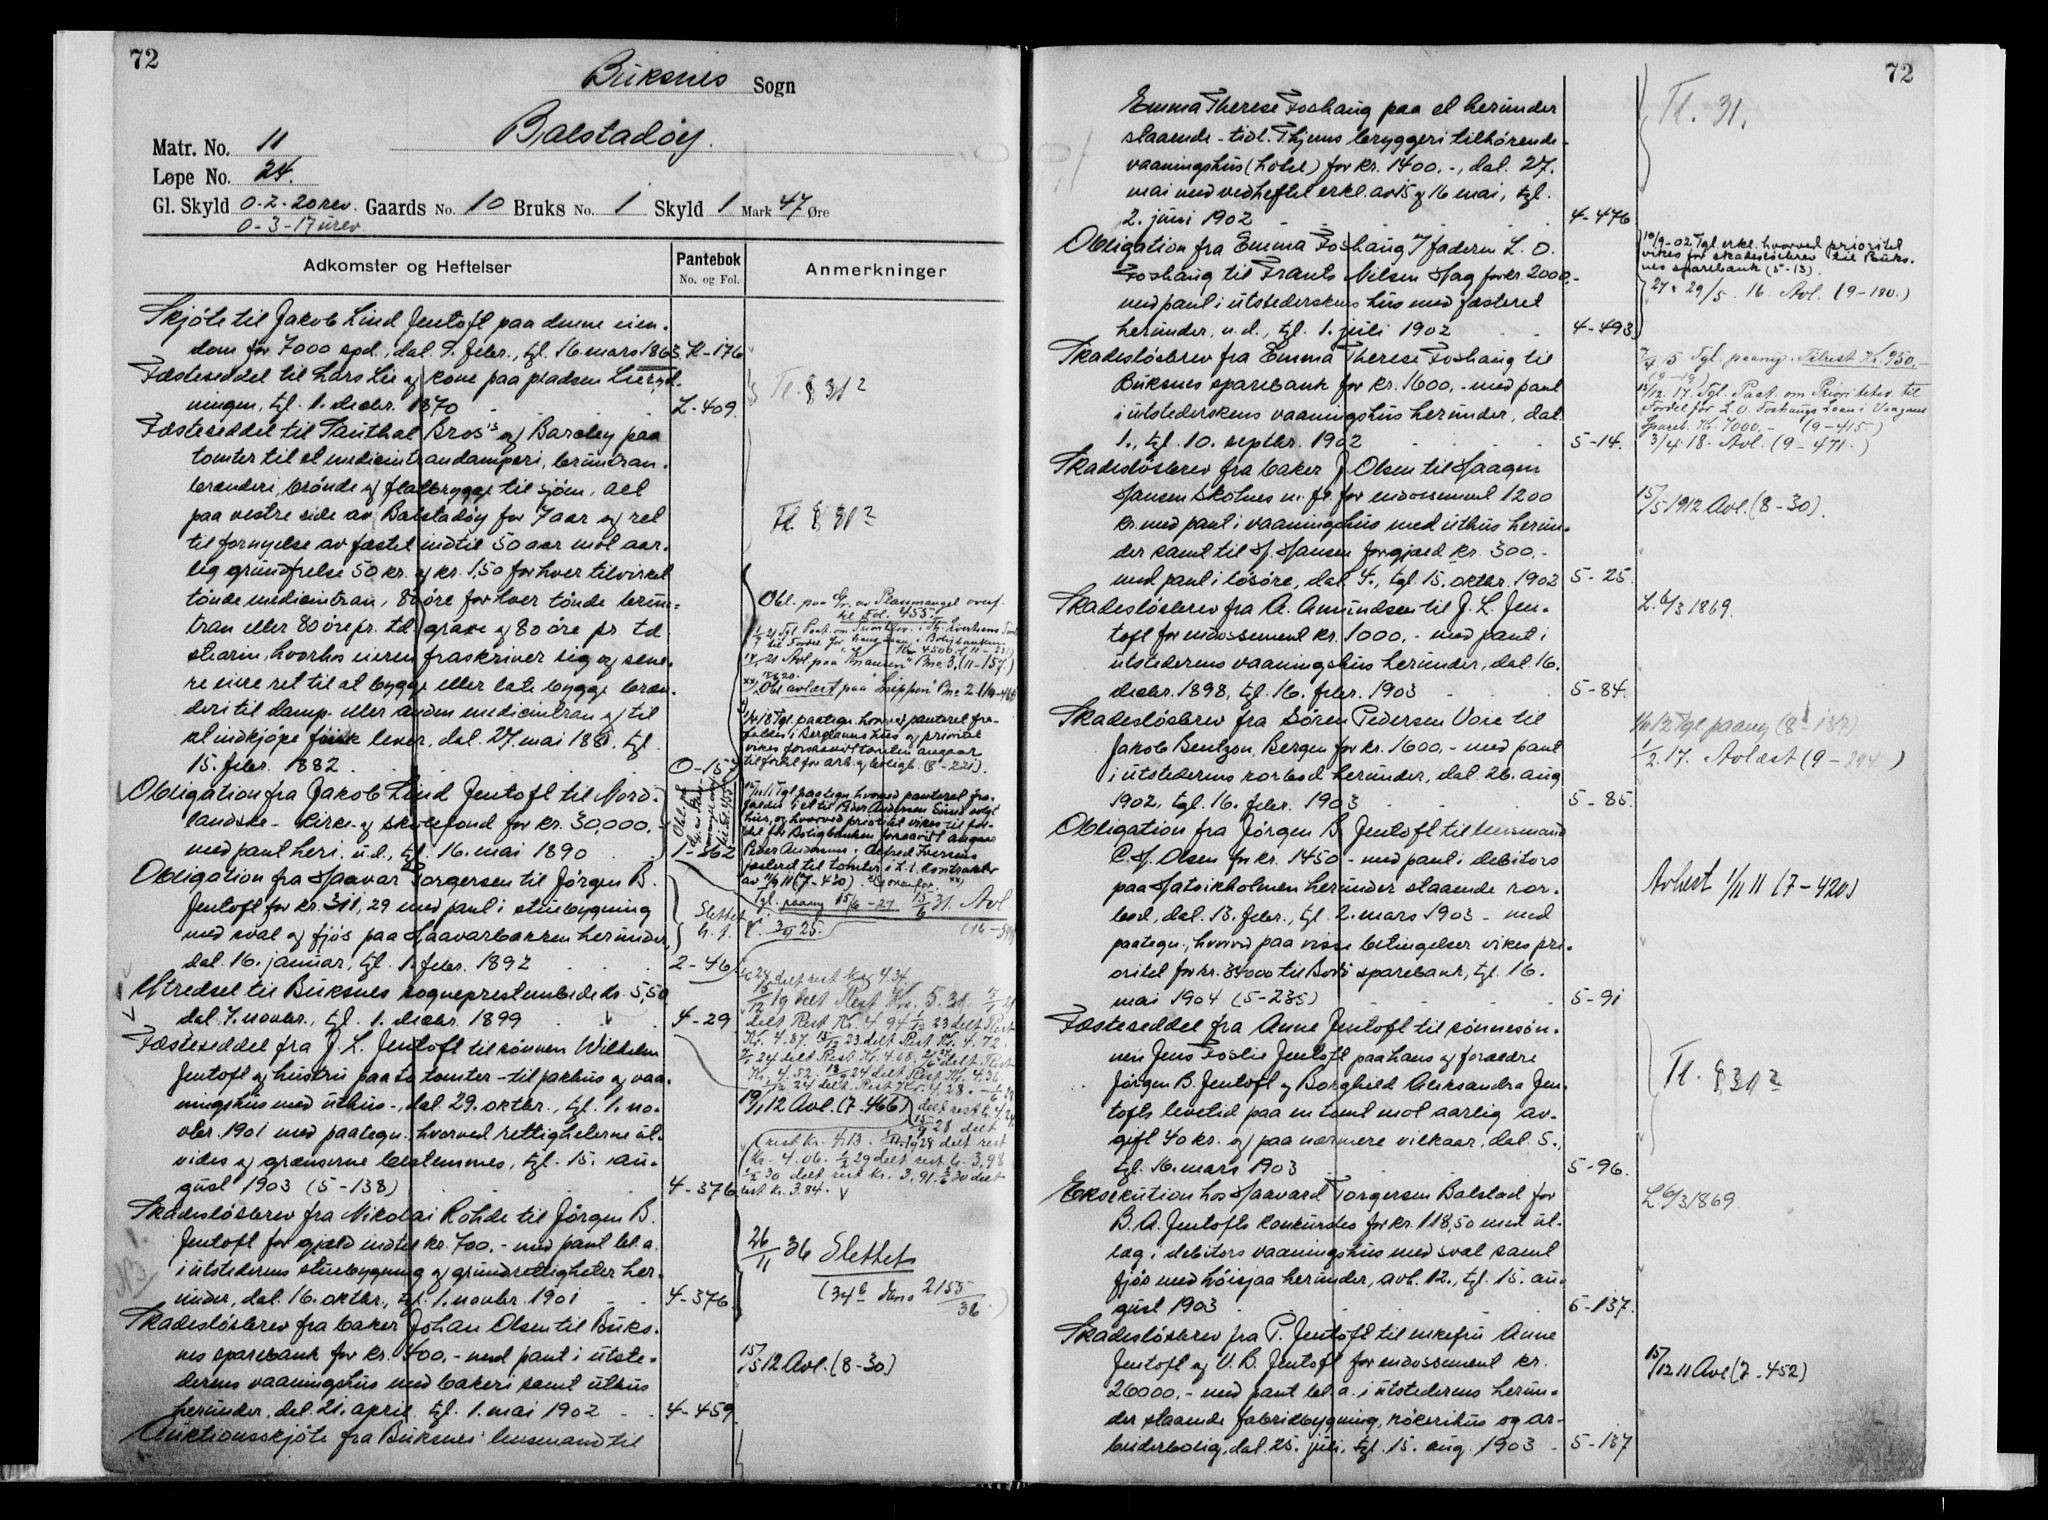 72
Buksnes Sogn
Balstadøy.
Matr. No. 11
Løpe No. 24.
Gl. Skyld 0-2-20 rev. Gaards No. 10 Bruks No. 1 Skyld 1 Mark 47 Øre
0-3-17 urev.
Adkomster og Heftelser
Pantebok
No. og Fol.
Anmerkninger
Skjøte til Jakob Lind Jentoft paa denne eien-
dom for 7000 spd., dat. 9. febr., tgl. 16. mars 1863. K-176
Fæsteseddel til Lars Lie og kone paa pladsen Lieryd-
ningen, tgl. 1. decbr. 1870 L-409.
Fæsteseddel til Bros's og Barcley paa
tomter til et medicintrandamperi, bruntran-
brænderi, brønde og flatbrygge til sjøen, alt
paa vestre side av Balstadøy for 7 aar og ret
til fornyelse av fæstet indtil 50 aar mot aar-
lig grundfrelse 50 kr. og kr. 1,50 for hver tilvirket
tønde medicintran, 80 øre for hver tønde brun-
tran eller 80 øre pr. td graxe og 80 øre pr td
stearin, hvorhos eieren fraskriver sig og sene-
re eiere ret til at bygge eller late bygge bræn-
deri til damp- eller anden medicintran og til
at indkjøpe fisk lever, dat. 27. mai 1881, tgl.
15. febr. 1882 O-157
Obligation fra Jakob Lind Jentoft til Nord-
landske kirke- og skolefond for kr. 30,000,-
med pant heri, u.d., tgl. 16. mai 1890 1-862
Obligation fra Haavar Torgersen til Jørgen B.
Jentoft for kr. 311,29 med pant i stuebygning
med sval og fjøs paa Haavarbakken herunder,
dat. 16. januar, tgl. 1. febr. 1892 2-46
Utredsel til Buksnes sogneprestembede kr. 5,50
dat. 7. novbr., tgl. 1. decbr. 1899 4-29
Fæsteseddel fra J. L. Jentoft til sønnen Wilhelm
Jentoft og hustru paa to tomter - til pakhus og vaa-
ningshus med uthus -, dat. 29. oktbr., tgl. 1. no-
vbr. 1901 med paategn. hvorved rettigheterne ut-
vides og grænserne bestemmes, tgl. 15. au-
gust 1903 (5-138) 4-376
Skadesløsbrev fra Nikolai Rohde til Jørgen B.
Jentoft for gjæld indtil kr. 700,- med pant bl. a.
i utstederens stuebygning og grundrettigheter her-
under, dat. 16. oktbr., tgl. 1. novbr. 1901 4-376
Skadesløsbrev fra baker Johan Olsen til Buks-
nes sparebank for kr. 400,- med pant i utste-
derens vaaningshus med bakeri samt uthus
herunder, dat. 21. april, tgl. 1. mai 1902 4-459
Auktionsskjøte fra Buksnes lensmand til
Tl. § 31²
Tl. § 31²
Obl. paa Gr. av Plassmangel overf.
til Fol. 455
Obl avlæst paa "Snippen" Bnr 2
1/6 18 Tgl. paategn. hvorved panteret fra-
faldes i Bergmanns hus og prioritet
vikes forsaavidt tomten angaar
til fordel for arb. og boligb. (8-221).
15/11 11 Tgl paategn hvorved panteret fra-
faldes i et til Peder Andersen solgt
hus, og hvorved prioritet vikes til for-
del for Boligbanken forsaavidt angaar
Peder Andersens og Alfred Iversens
fæsteret til tomter i h. t. kontrakter
av 11/9 11 (7-430).
Tgl. paateg 15/6-27 15/6 31. Avl
Slettet h. t. L. 3/7 25.
19/1 12 Avl. (7-466)
rest Kr. 4.13.
Kr. 4.06. 1/2 29 delt rest kr. 3,98
1/2 30 delt rest kr. 3,91. 30 delt
rest kr. 3.84. v
26/11 36 Slettet
(34 b 2155/36.)
15/5 12 Avl. (8-30)
72
Emma Therese Foshaug paa et herunder
staaende - tidl. Thjems bryggeri tilhørende -
vaaningshus (hotel) for kr. 1400.-, dat. 27.
mai med vedheftet erkl. av 15 og 16 mai, tgl.
2. juni 1902 4-476
Tl. 31.
Obligation fra Emma Foshaug / faderen L. O.
Foshaug til Frants Nilsen Hag for kr. 2000,-
med pant i utstederskens hus med fæsteret
herunder, u.d., tgl. 1. juli 1902 4-493
10/9-02 Tgl. erkl. hvorved prioritet
vikes for skadesløsbrev til Buks-
nes sparebank (5-13).
27 & 29/5. 16. Avl. (9-180.)
Skadesløsbrev fra Emma Therese Foshaug til
Buksnes sparebank for kr. 1600,- med pant
i utstederskens vaaningshus herunder, dat.
1., tgl. 10. septbr. 1902 5-14.
7/4 15 Tgl. paateg. Tilrest Kr. 950,-
(9-19)
15/12. 17. Tgl. Paat. om Prioritetsv. til
Fordel for L. O. Foshaugs Laan i Vaagans
Spareb. Kr. 7000,- (9-415.)
3/4 18. Avl. (9-471.)
Skadesløsbrev fra baker J Olsen til Haagen
Hansen Skotnes m. fl. for endossement 1200
kr. med pant i vaaningshus med uthus herun-
der samt til H. Hansen for gjæld kr. 300,-
med pant i løsøre, dat. 4., tgl. 15. oktbr. 1902 5-25.
15/5 1912 Avl. (8-30).
Skadesløsbrev fra A. Amundsen til J. L. Jen-
toft for endossement kr. 1000,- med pant i
utstederens vaaningshus herunder, dat. 16.
decbr. 1898, tgl. 16. febr. 1903 5-84.
L. 6/3 1869.
Skadesløsbrev fra Søren Pedersen Voie til
Jakob Bentzon, Bergen for kr. 1600,- med pant
i utstederens rorbod herunder, dat. 26. aug
1902, tgl. 16. febr. 1903 5-85.
Tgl paateg (8-137)
1/2. 17. Avlæst (9-294)
Obligation fra Jørgen B. Jentoft til lensmand
C. H. Olsen for kr. 1450,- med pant i debitors
paa Hatvikholmen herunder staaende ror-
bod, dat. 13. febr., tgl. 2. mars 1903 - med
paategn., hvorved paa visse betingelser vikes pri-
oritet for kr. 34000 til Bodø sparebank, tgl. 16.
mai 1904 (5-235) 5-91
Avlæst 1/11 11 (7-420)
Fæsteseddel fra Anne Jentoft til sønnesøn-
nen Jens Foslie Jentoft paa hans og forældre
Jørgen B. Jentoft og Borghild Aleksandra Jen-
tofts levetid paa en tomt mot aarlig av-
gift 40 kr. og paa nærmere vilkaar, dat. 5.,
tgl. 16. mars 1903 5-96.
Tl. § 31²
Eksekution hos Haavard Torgersen Balstad for
B. A. Jentofts konkursbo for kr. 118,50 med ut-
læg i debitors vaaningshus med sval samt
fjøs med høisjaa herunder, avh. 12., tgl. 15. au-
gust 1903 5-137.
L 6/3 1869.
Skadesløsbrev fra P. Jentoft til enkefru Anne
Jentoft og U. B. Jentoft for endossement kr.
26000,- med pant bl. a. i utstederens herun-
der staaende fabrikbygning, røkerihus og ar-
beiderbolig, dat. 25. juli, tgl. 15. aug. 1903 5-137
15/12 11 Avl (7-452)